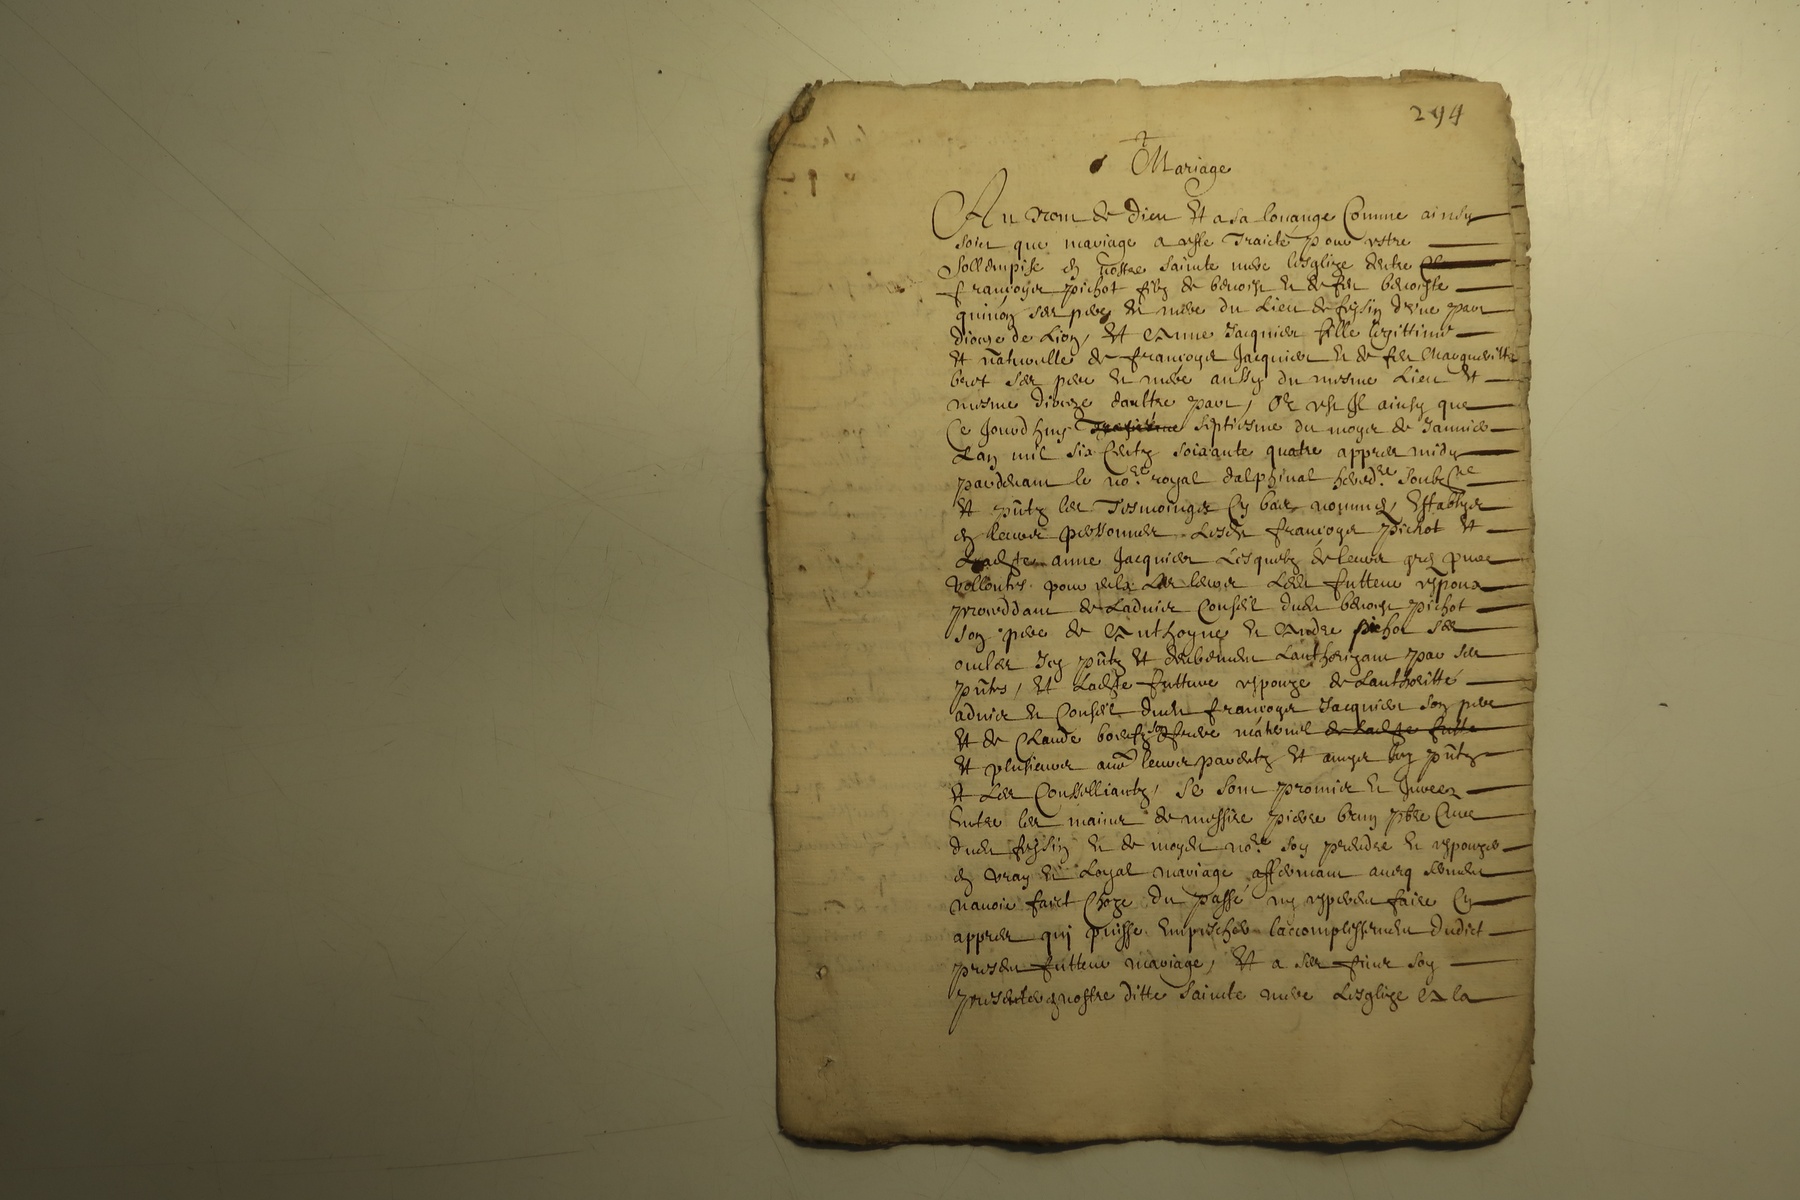 294
Mariage
Au Nom de Dieu Et a sa louange Comme ainsy
soict que mariage a este Traicté pour estre
Sollempise en nostre sainte mere lesglize entre
françoys pichot filz de benoist et de feu benoiste
quinon ses pere et mere du Lieu de feysin d'une part
dioceze de Lion, Et Anne Jacquier fille legittime
Et naturelle de françoys Jacquier et de feu Margueritte
bert ses pere et mere aussy du mesme Lieu Et
mesme dioceze daultre part, Or est Il ainsy que
Ce Jourdhuy septiesme du moys de Janvier
Lan mil six Centz soixante quatre appres midy
pardevant le no.re royal dalphinal hered.re soubz.ne
Et pñtz les Tesmoings Cy bas nommes, Establys
en leurs personnes Lesd. françoys pichot Et
Ladste anne Jacquier Lesquelz de leurs gres pures
Vollontes pour eulx Les leurs Led. futteur espoux
proceddant de Ladvis Conseil dud. benoist pichot
son pere de Anthoyne et Andre pichot ses
oncles Icy pñtz Et deubement Lauthorizant par ses
pñtes, Et Ladste futture espouze de Lauthoritté
advis et Conseil dud. françoys Jacquier son pere
Et de Claude son frere maternel de ladste futte
Et plusieurs au.es leurs parentz Et amys Icy pñtz
Et Les Conselliantz, Se sont promis et Jures
Entre les mains de messire pierre brun pbre Cure
dud. feysin et de moyd. no.re soy prendre et espouzer
en vray et Loyal mariage affermant avecq serment
navoir faict Choze du passé ny esperer faire Cy
appres qui puisse Empescher laccomplissement dudict
present futteur mariage, Et a ses fins soy
presenter en nostre ditte Sainte mere Lesglize A la